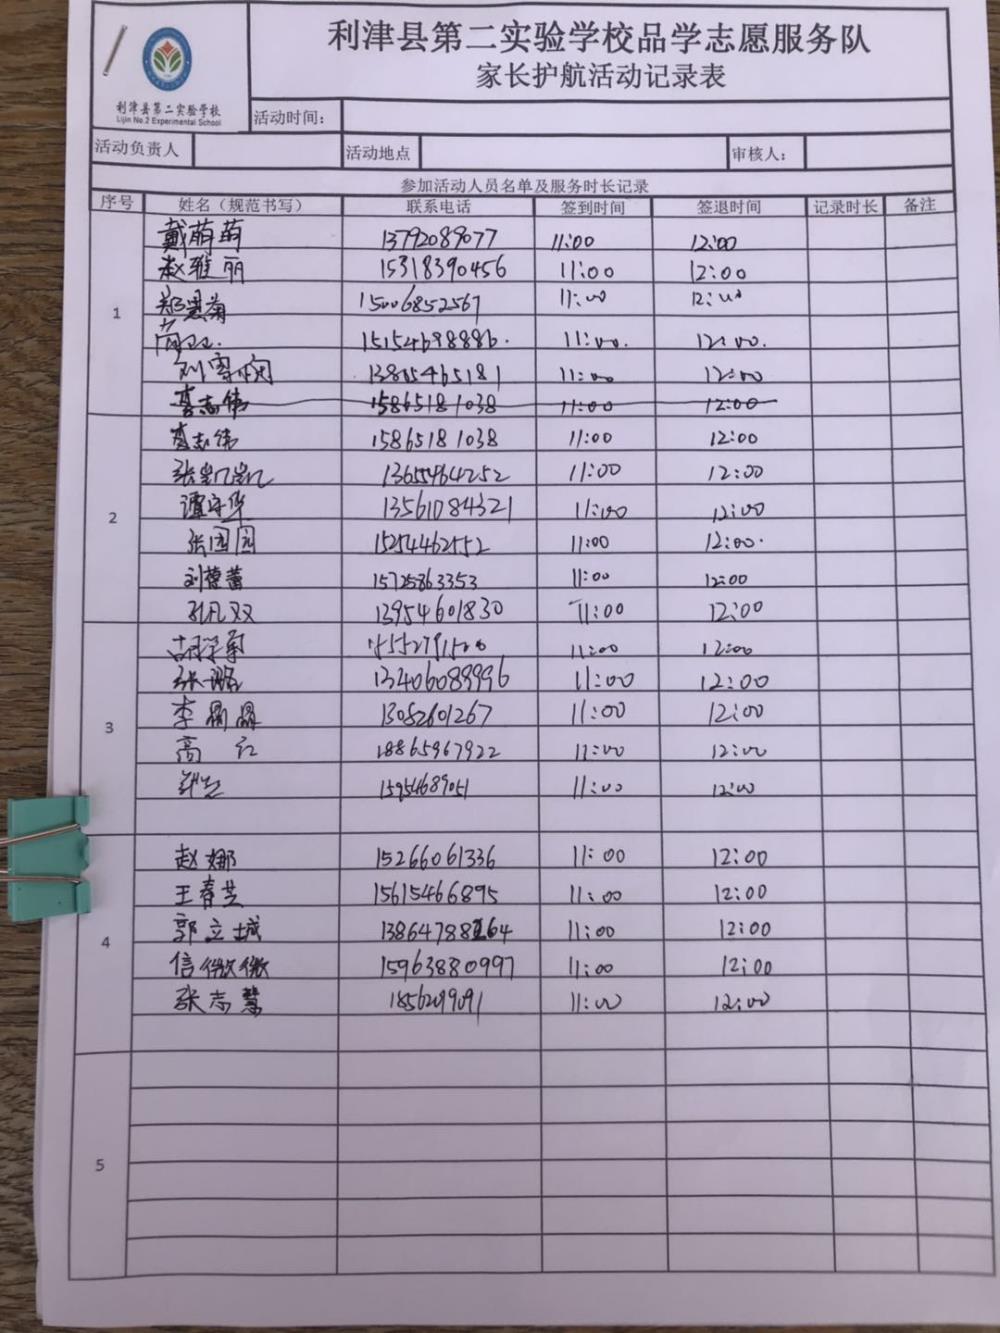 利津县第二实验学校品学志愿服务队
家长护航活动记录表
利津县第二实验学校
Lijin No.2 Experimental School
活动时间：
活动负责人 活动地点 审核人：
参加活动人员名单及服务时长记录
序号 姓名（规范书写） 联系电话 签到时间 签退时间 记录时长 备注
1
戴萌萌 13792089077 11:00 12:00
赵雅丽 15318390456 11:00 12:00
郑思菊 15006852567 11:00 12:00
15154698886. 11:00. 12:00.
刘雪娴 13805465181 11:00 12:00
李志伟 15865181038 11:00 12:00
2
李志伟 15865181038 11:00 12:00
张凯凯 13655464252 11:00 12:00
谭守华 13561084321 11:00 12:00
张园园 15254462552 11:00 12:00.
刘蕾蕾 15725863353 11:00 12:00
孔凡双 13954601830 11:00 12:00
3
胡学勇 11:00 12:00
张璐 13406089996 11:00 12:00
李晶晶 13082601267 11:00 12:00
高红 18865967922 11:00 12:00
15954689051 11:00 12:00
4
赵娜 15266061336 11:00 12:00
王春芝 15615466895 11:00 12:00
郭立城 13864788264 11:00 12:00
信微微 15963880997 11:00 12:00
张志慧 1856299091 11:00 12:00
5